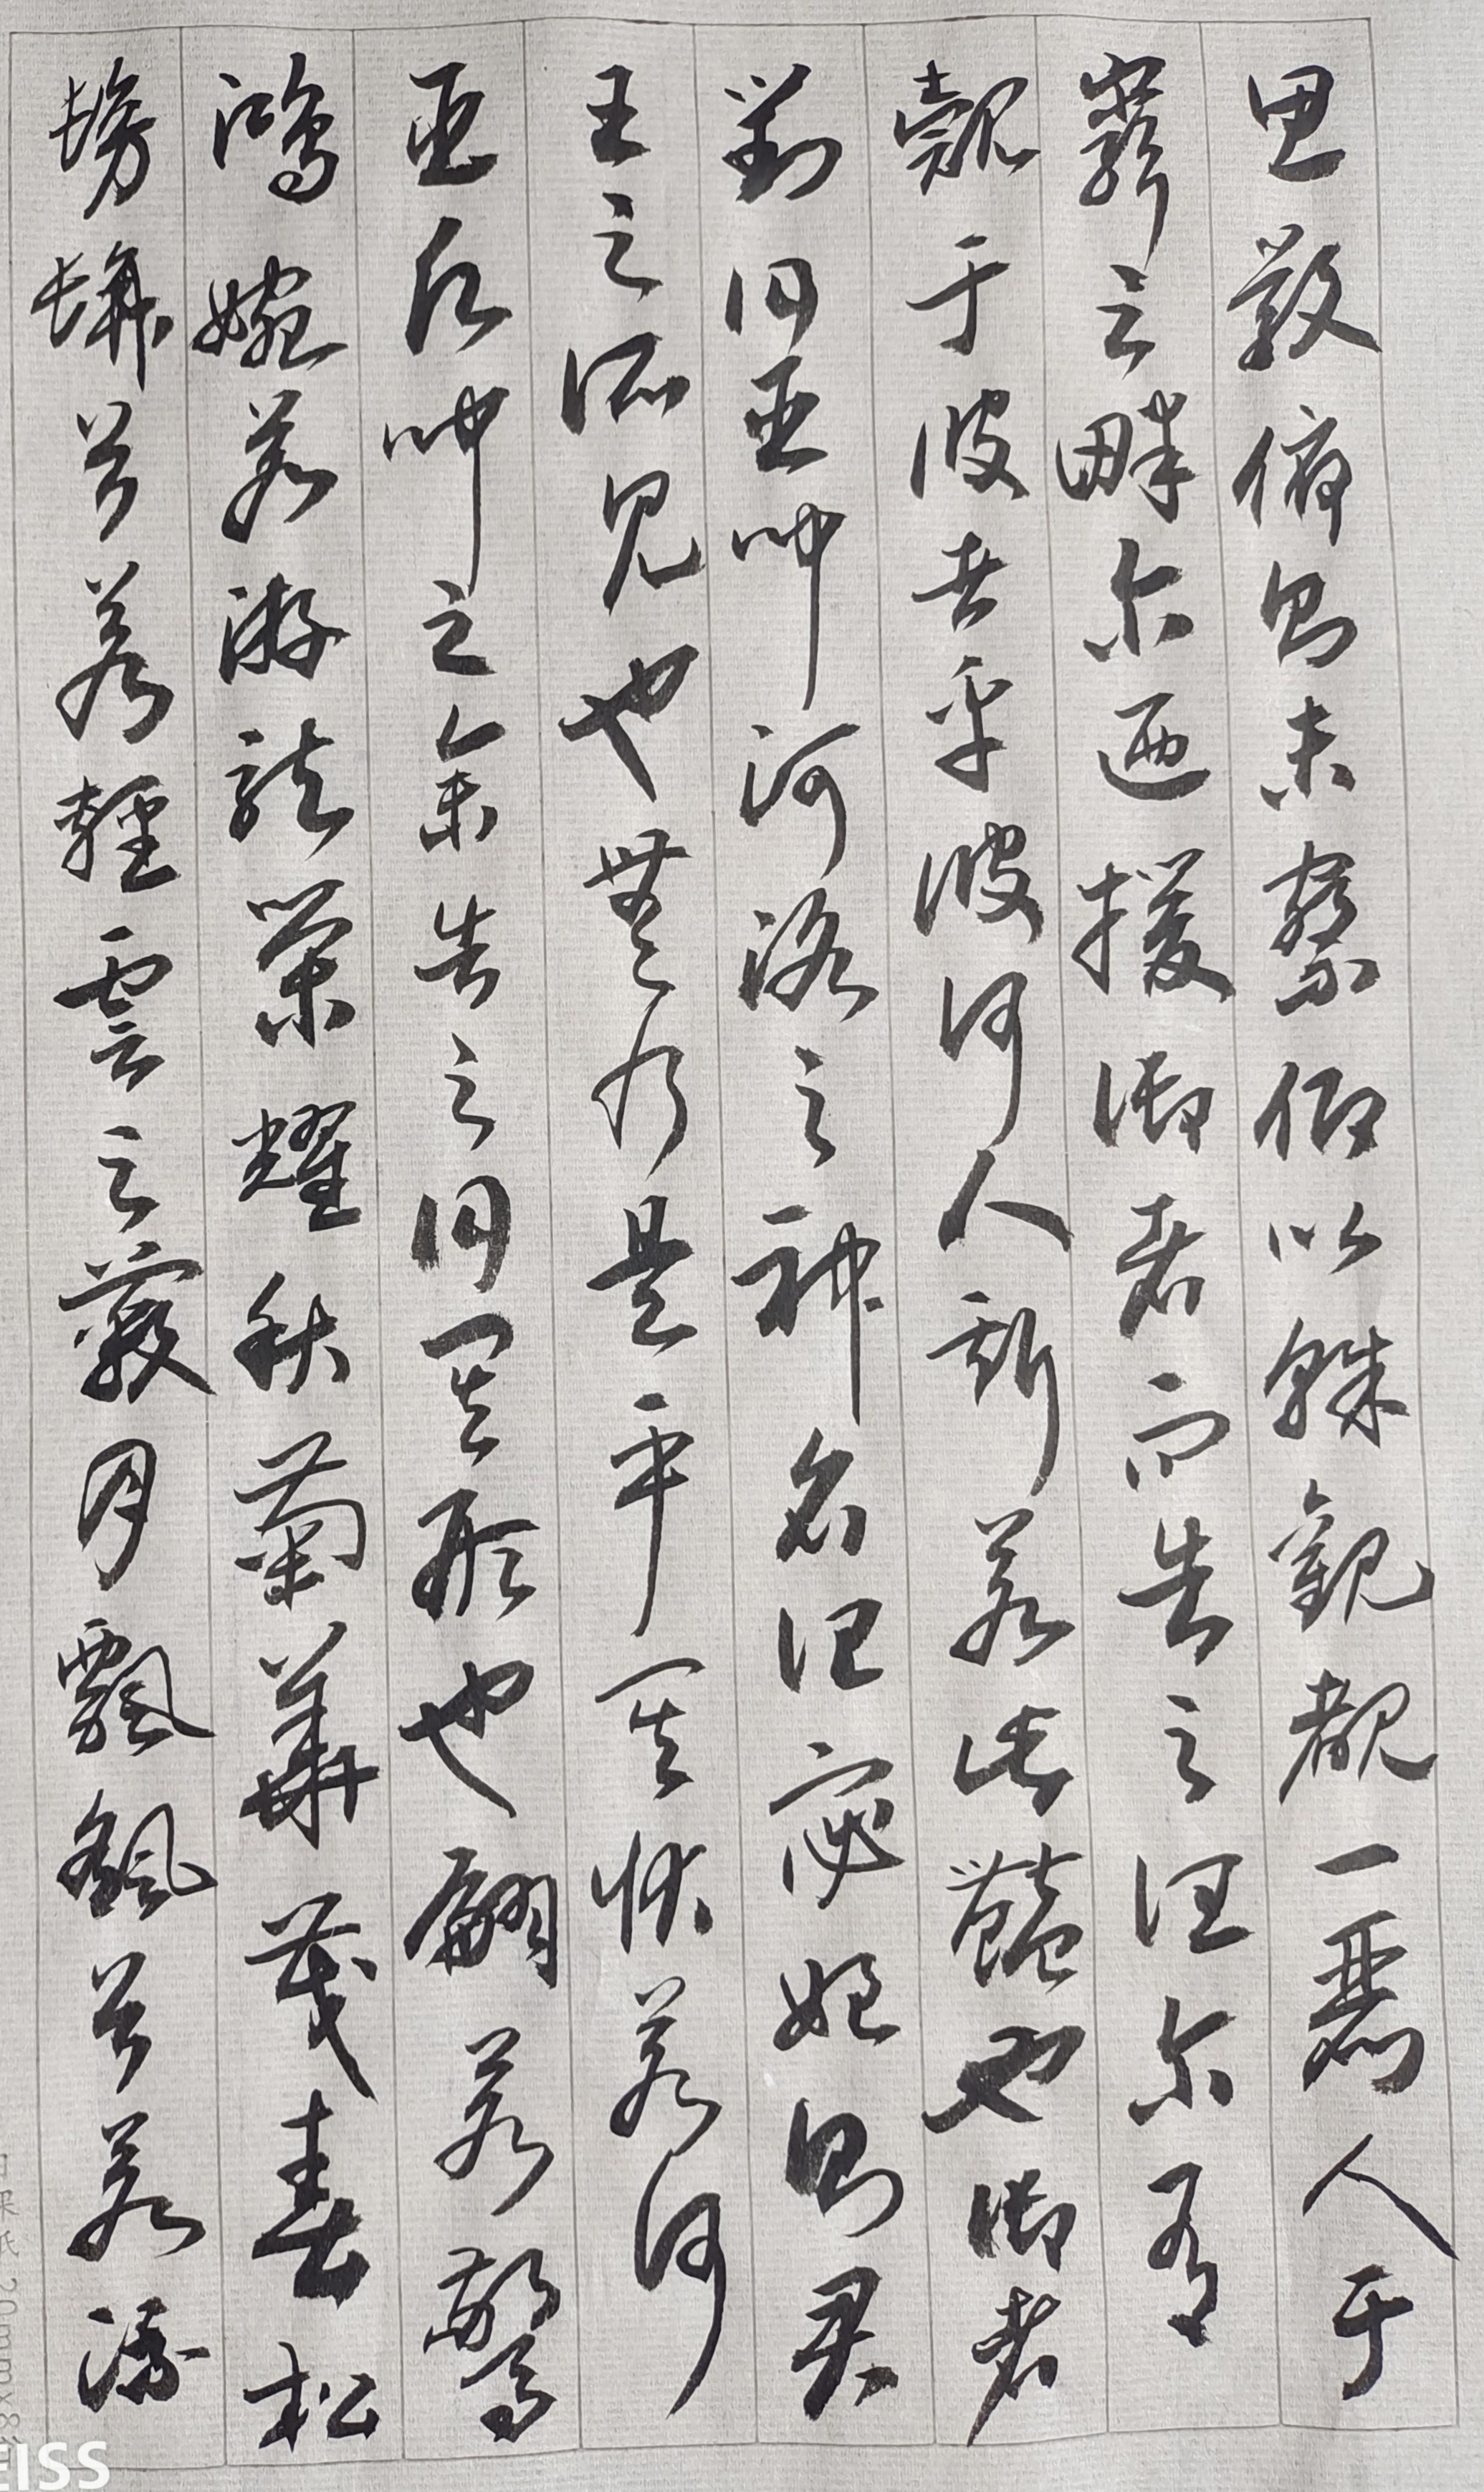 思散俯則未察仰以殊觀覩一麗人于
巖之畔尔迺援御者而告之曰尔有
覿于彼者乎彼何人斯若此豔也御者
對曰臣聞河洛之神名曰宓妃則君
王之所見也無乃是乎其狀若何
臣願聞之余告之曰其形也翩若驚
鴻婉若游龍榮耀秋菊華茂春松
髣髴兮若輕雲之蔽月飄颻兮若流
EISS